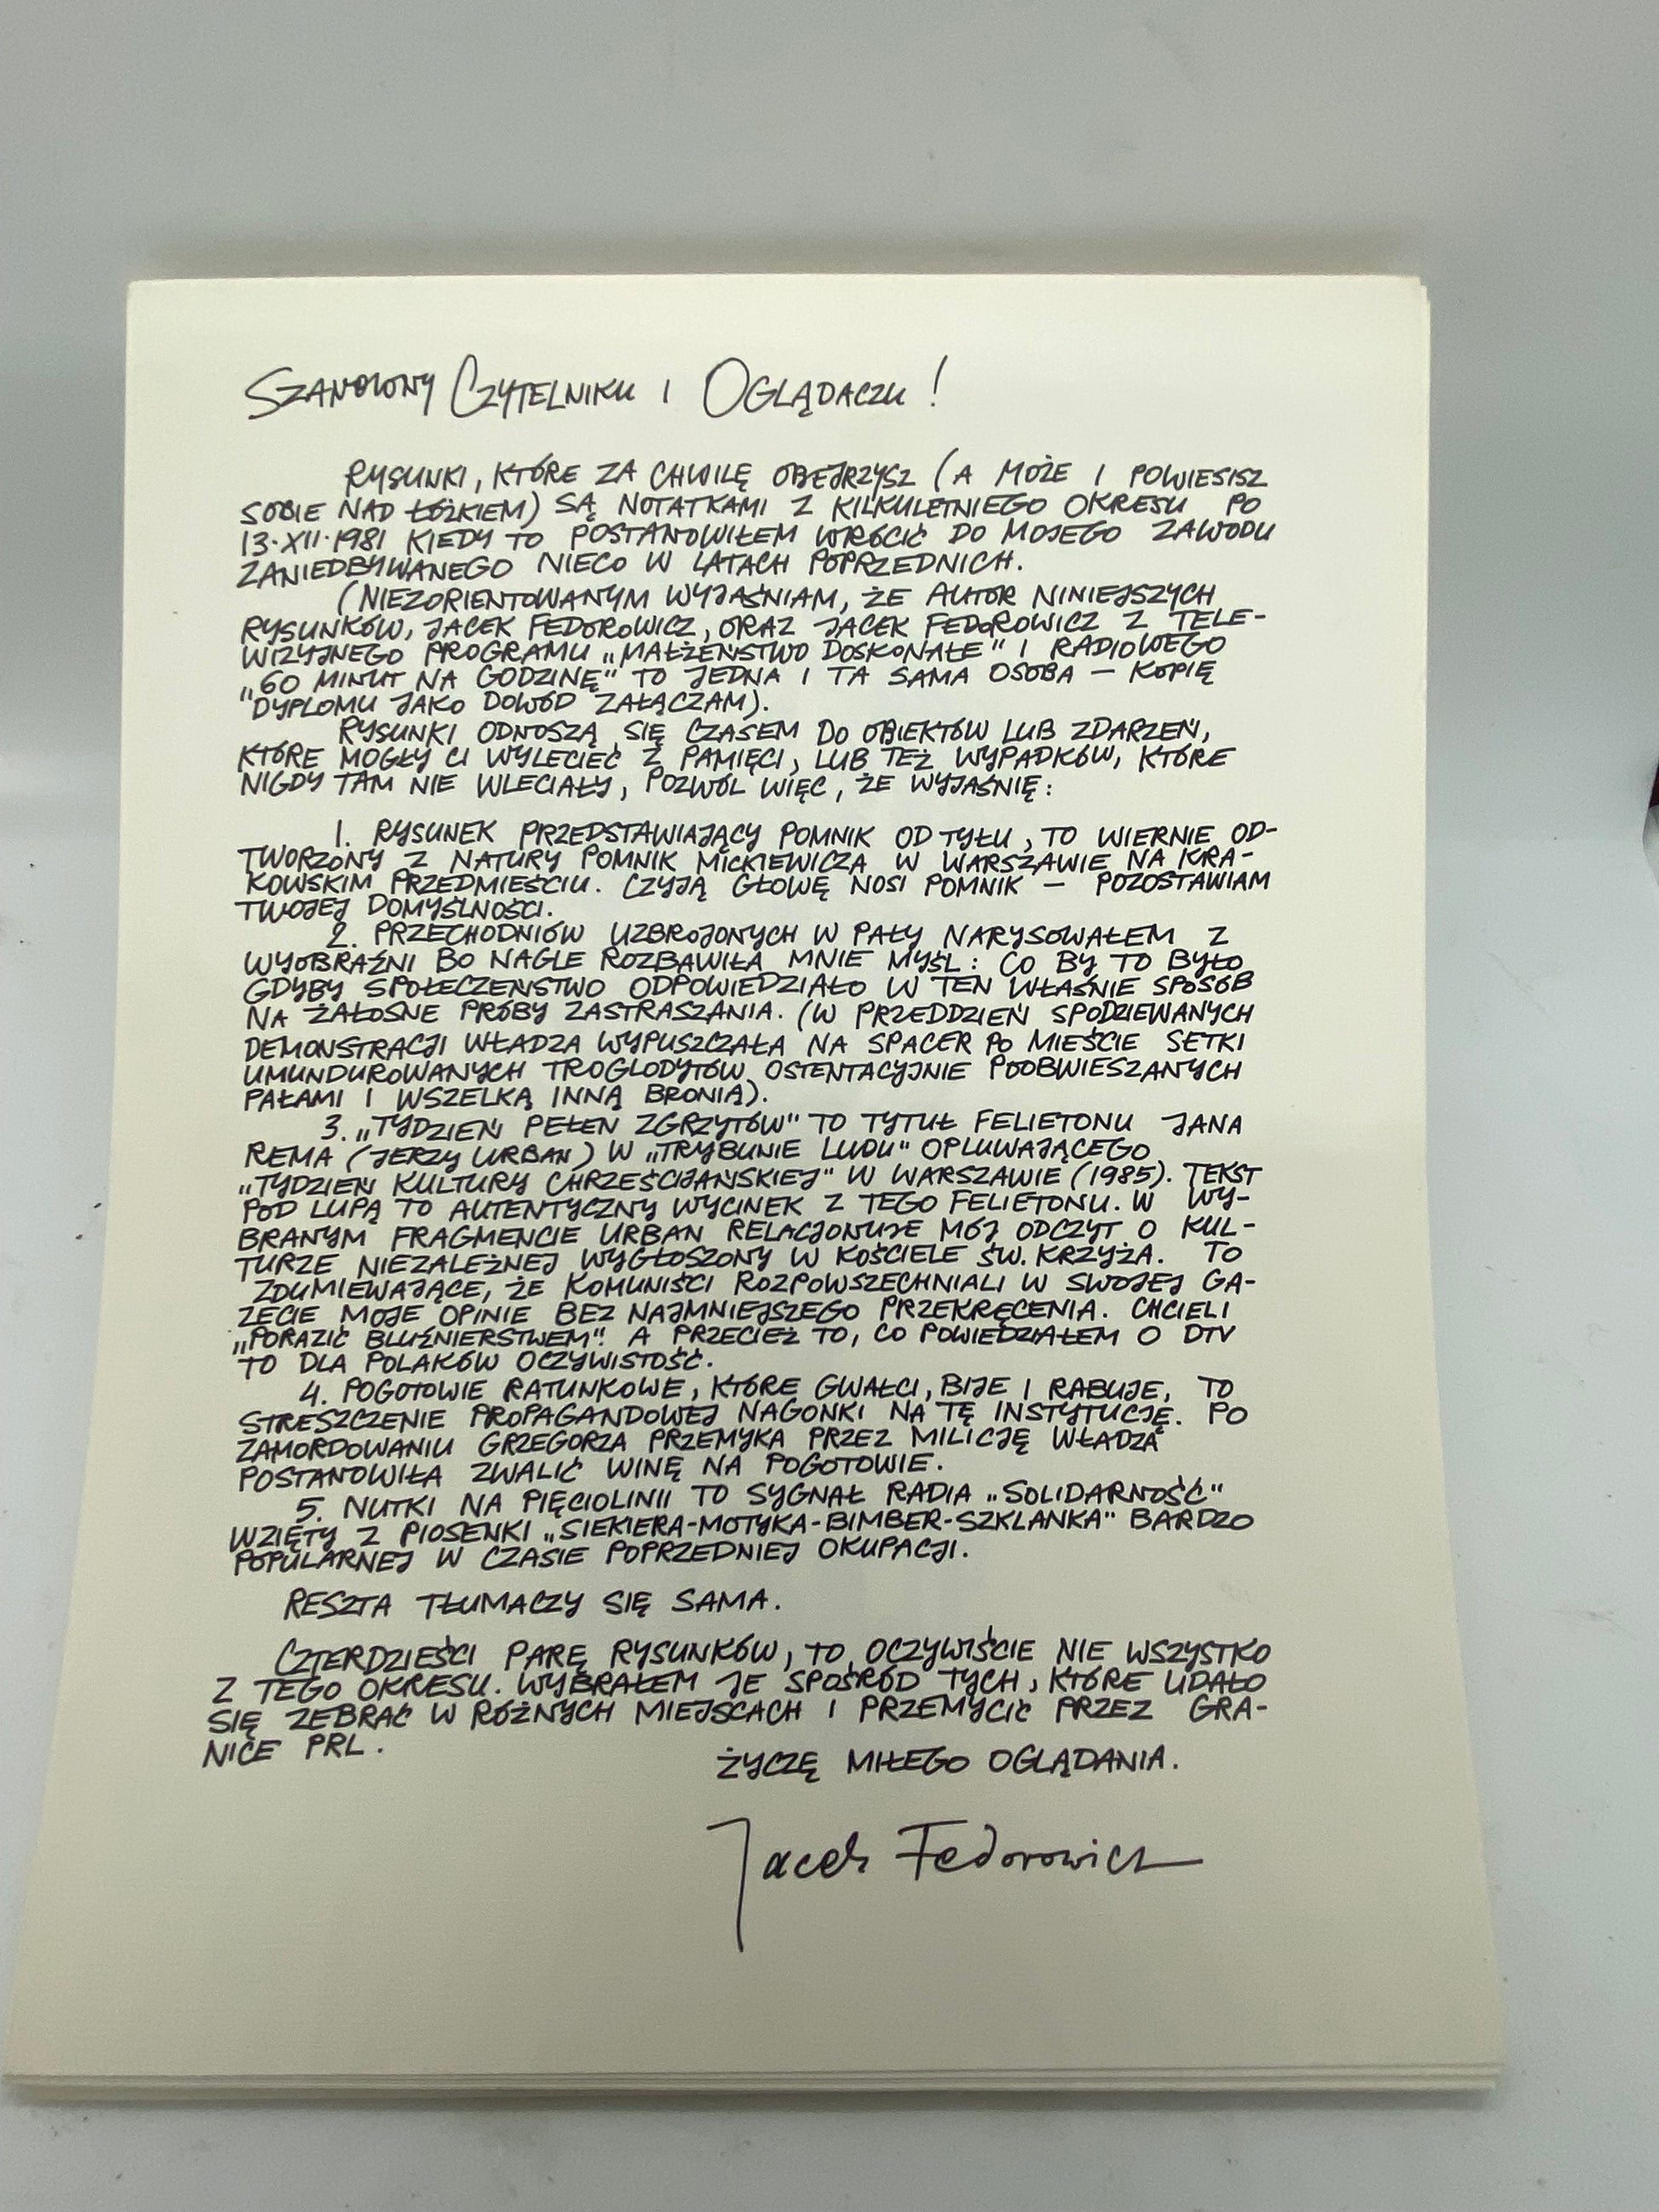 SZANOWNY CZYTELNIKU I OGLĄDACZU!
RYSUNKI, KTÓRE ZA CHWILĘ OBEJRZYSZ (A MOŻE I POWIESISZ
SOBIE NAD ŁÓŻKIEM) SĄ NOTATKAMI Z KILKULETNIEGO OKRESU PO
13.XII.1981 KIEDY TO POSTANOWIŁEM WRÓCIĆ DO MOJEGO ZAWODU
ZANIEDBYWANEGO NIECO W LATACH POPRZEDNICH.
(NIEZORIENTOWANYM WYJAŚNIAM, ŻE AUTOR NINIEJSZYCH
RYSUNKÓW, JACEK FEDOROWICZ, ORAZ JACEK FEDOROWICZ Z TELE-
WIZYJNEGO PROGRAMU „MAŁŻEŃSTWO DOSKONAŁE" I RADIOWEGO
„60 MINUT NA GODZINĘ" TO JEDNA I TA SAMA OSOBA — KOPIĘ
DYPLOMU JAKO DOWÓD ZAŁĄCZAM).
RYSUNKI ODNOSZĄ SIĘ CZASEM DO OBIEKTÓW LUB ZDARZEŃ,
KTÓRE MOGŁY CI WYLECIEĆ Z PAMIĘCI, LUB TEŻ WYPADKÓW, KTÓRE
NIGDY TAM NIE WLECIAŁY, POZWÓL WIĘC, ŻE WYJAŚNIĘ:
1. RYSUNEK PRZEDSTAWIAJĄCY POMNIK OD TYŁU, TO WIERNIE OD-
TWORZONY Z NATURY POMNIK MICKIEWICZA W WARSZAWIE NA KRA-
KOWSKIM PRZEDMIEŚCIU. CZYJĄ GŁOWĘ NOSI POMNIK — POZOSTAWIAM
TWOJEJ DOMYŚLNOŚCI.
2. PRZECHODNIÓW UZBROJONYCH W PAŁY NARYSOWAŁEM Z
WYOBRAŹNI BO NAGLE ROZBAWIŁA MNIE MYŚL: CO BY TO BYŁO
GDYBY SPOŁECZEŃSTWO ODPOWIEDZIAŁO W TEN WŁAŚNIE SPOSÓB
NA ŻAŁOSNE PRÓBY ZASTRASZANIA. (W PRZEDDZIEŃ SPODZIEWANYCH
DEMONSTRACJI WŁADZA WYPUSZCZAŁA NA SPACER PO MIEŚCIE SETKI
UMUNDUROWANYCH TROGLODYTÓW OSTENTACYJNIE POOBWIESZANYCH
PAŁAMI I WSZELKĄ INNĄ BRONIĄ).
3. „TYDZIEŃ PEŁEN ZGRZYTÓW" TO TYTUŁ FELIETONU JANA
REMA (JERZY URBAN) W „TRYBUNIE LUDU" OPLUWAJĄCEGO
„TYDZIEŃ KULTURY CHRZEŚCIJAŃSKIEJ" W WARSZAWIE (1985). TEKST
POD LUPĄ TO AUTENTYCZNY WYCINEK Z TEGO FELIETONU. W WY-
BRANYM FRAGMENCIE URBAN RELACJONUJE MÓJ ODCZYT O KUL-
TURZE NIEZALEŻNEJ WYGŁOSZONY W KOŚCIELE ŚW. KRZYŻA. TO
ZDUMIEWAJĄCE, ŻE KOMUNIŚCI ROZPOWSZECHNIALI W SWOJEJ GA-
ZECIE MOJE OPINIE BEZ NAJMNIEJSZEGO PRZEKRĘCENIA. CHCIELI
„PORAZIĆ BLUŹNIERSTWEM". A PRZECIEŻ TO, CO POWIEDZIAŁEM O DTV
TO DLA POLAKÓW OCZYWISTOŚĆ.
4. POGOTOWIE RATUNKOWE, KTÓRE GWAŁCI, BIJE I RABUJE, TO
STRESZCZENIE PROPAGANDOWEJ NAGONKI NA TĘ INSTYTUCJĘ. PO
ZAMORDOWANIU GRZEGORZA PRZEMYKA PRZEZ MILICJĘ WŁADZA
POSTANOWIŁA ZWALIĆ WINĘ NA POGOTOWIE.
5. NUTKI NA PIĘCIOLINII TO SYGNAŁ RADIA „SOLIDARNOŚĆ"
WZIĘTY Z PIOSENKI „SIEKIERA-MOTYKA-BIMBER-SZKLANKA" BARDZO
POPULARNEJ W CZASIE POPRZEDNIEJ OKUPACJI.
RESZTA TŁUMACZY SIĘ SAMA.
CZTERDZIEŚCI PARĘ RYSUNKÓW, TO OCZYWIŚCIE NIE WSZYSTKO
Z TEGO OKRESU. WYBRAŁEM JE SPOŚRÓD TYCH, KTÓRE UDAŁO
SIĘ ZEBRAĆ W RÓŻNYCH MIEJSCACH I PRZEMYCIĆ PRZEZ GRA-
NICE PRL.
ŻYCZĘ MIŁEGO OGLĄDANIA.
Jacek Fedorowicz